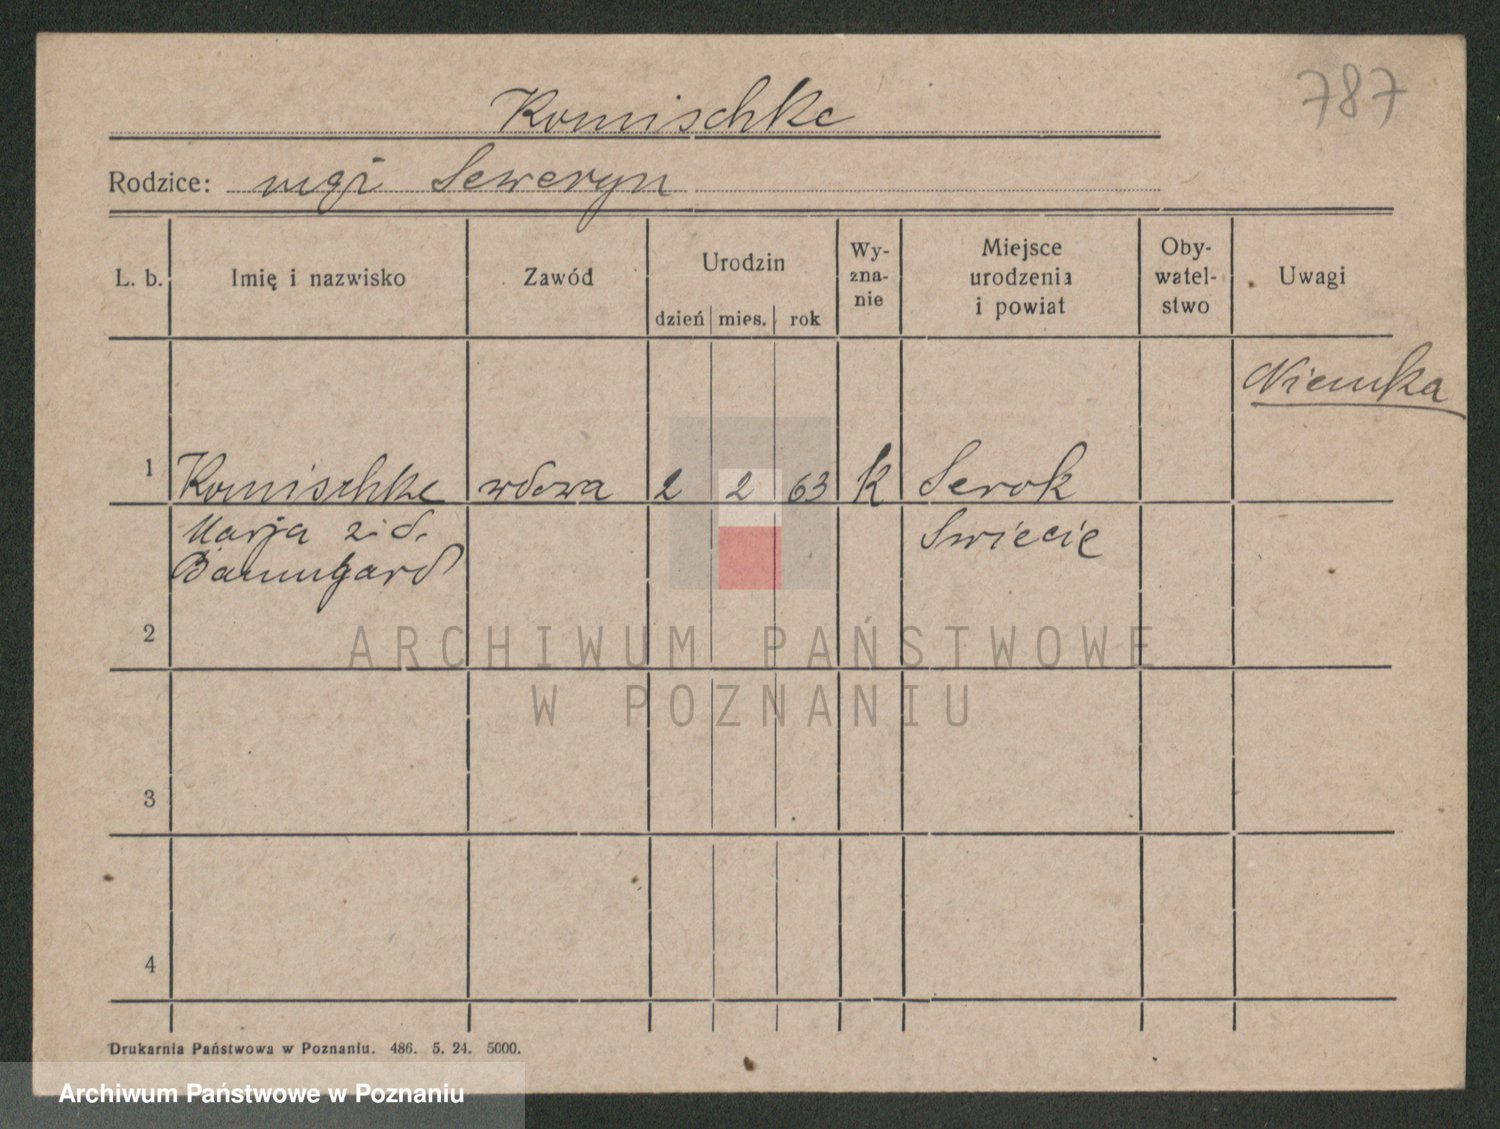 787
Komischke
Rodzice: mąż Seweryn
L. b. Imię i nazwisko Zawód Urodzin dzień mies. rok Wy-zna-nie Miejsce urodzenia i powiat Oby-watel-stwo Uwagi
Niemka
1 Komischke wdowa 2 2 63 k Serok
Marja z d. Swiecie
Baumgard
2
ARCHIWUM PAŃSTWOWE
W POZNANIU
3
4
Drukarnia Państwowa w Poznaniu. 486. 5. 24. 5000.
Archiwum Państwowe w Poznaniu